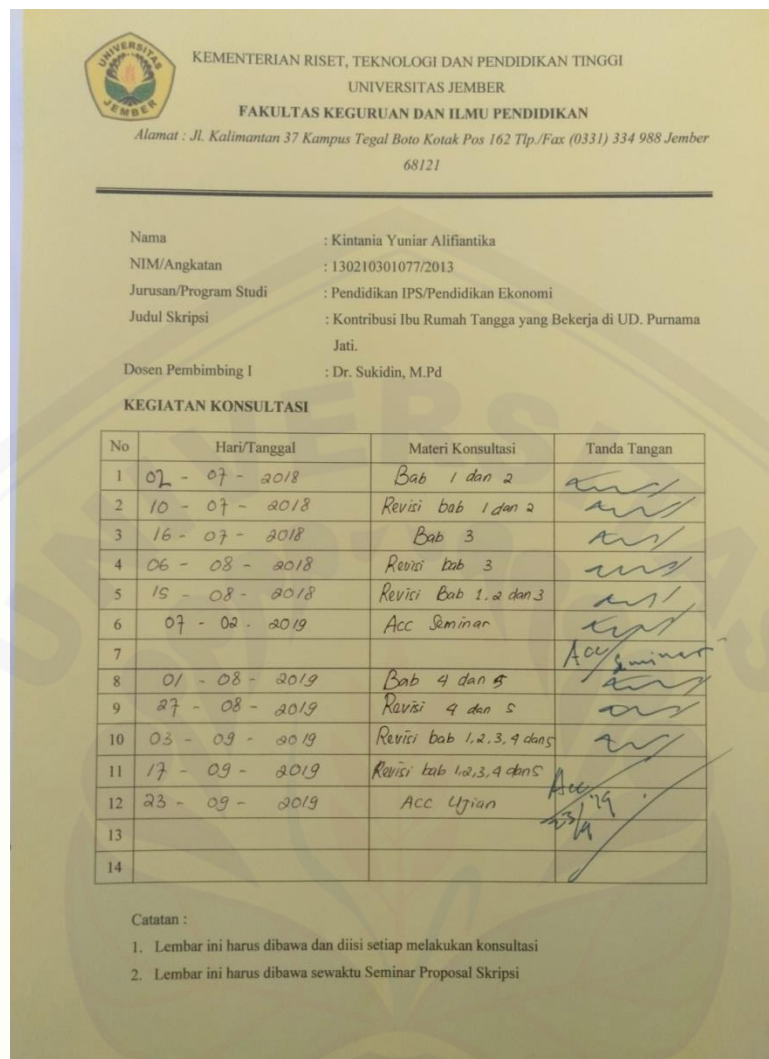 UNIVERSITAS JEMBER
KEMENTERIAN RISET, TEKNOLOGI DAN PENDIDIKAN TINGGI
UNIVERSITAS JEMBER
FAKULTAS KEGURUAN DAN ILMU PENDIDIKAN
Alamat : Jl. Kalimantan 37 Kampus Tegal Boto Kotak Pos 162 Tlp./Fax (0331) 334 988 Jember
68121
Nama : Kintania Yuniar Alifiantika
NIM/Angkatan : 130210301077/2013
Jurusan/Program Studi : Pendidikan IPS/Pendidikan Ekonomi
Judul Skripsi : Kontribusi Ibu Rumah Tangga yang Bekerja di UD. Purnama
Jati.
Dosen Pembimbing I : Dr. Sukidin, M.Pd
KEGIATAN KONSULTASI
No Hari/Tanggal Materi Konsultasi Tanda Tangan
1 02 - 07 - 2018 Bab 1 dan 2
2 10 - 07 - 2018 Revisi bab 1 dan 2
3 16 - 07 - 2018 Bab 3
4 06 - 08 - 2018 Revisi bab 3
5 15 - 08 - 2018 Revisi Bab 1.2 dan 3
6 07 - 02 - 2019 Acc Seminar
7 Acc seminar
8 01 - 08 - 2019 Bab 4 dan 5
9 27 - 08 - 2019 Revisi 4 dan 5
10 03 - 09 - 2019 Revisi bab 1,2,3,4 dan 5
11 17 - 09 - 2019 Revisi bab 1,2,3,4 dan 5
12 23 - 09 - 2019 Acc Ujian Acc 23/9 '19
13
14
Catatan :
1. Lembar ini harus dibawa dan diisi setiap melakukan konsultasi
2. Lembar ini harus dibawa sewaktu Seminar Proposal Skripsi